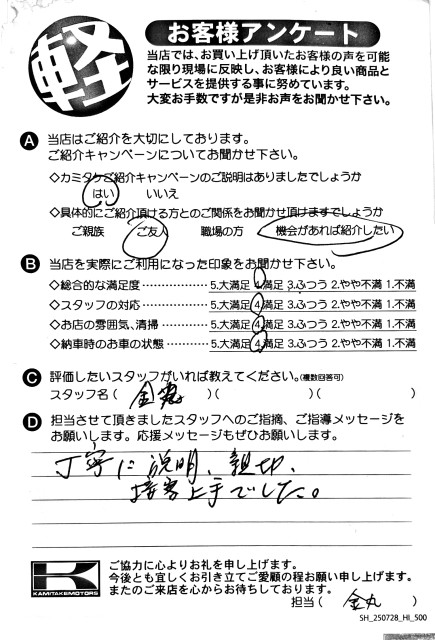 軽
お客様アンケート
当店では、お買い上げ頂いたお客様の声を可能
な限り現場に反映し、お客様により良い商品と
サービスを提供する事に努めています。
大変お手数ですが是非お声をお聞かせ下さい。
A 当店はご紹介を大切にしております。
ご紹介キャンペーンについてお聞かせ下さい。
◇カミタケご紹介キャンペーンのご説明はありましたでしょうか
はい いいえ
◇具体的にご紹介頂ける方とのご関係をお聞かせ頂けますでしょうか
ご親族 ご友人 職場の方 機会があれば紹介したい
B 当店を実際にご利用になった印象をお聞かせ下さい。
◇総合的な満足度 5.大満足 4.満足 3.ふつう 2.やや不満 1.不満
◇スタッフの対応 5.大満足 4.満足 3.ふつう 2.やや不満 1.不満
◇お店の雰囲気、清掃 5.大満足 4.満足 3.ふつう 2.やや不満 1.不満
◇納車時のお車の状態 5.大満足 4.満足 3.ふつう 2.やや不満 1.不満
C 評価したいスタッフがいれば教えてください。(複数回答可)
スタッフ名( 金丸 )( )( )
D 担当させて頂きましたスタッフへのご指摘、ご指導メッセージを
お願いします。応援メッセージもぜひお願いします。
丁寧に説明、親切、
接客上手でした。
K KAMITAKEMOTORS
ご協力に心よりお礼を申し上げます。
今後とも宜しくお引き立てご愛顧の程お願い申し上げます。
またのご来店を心からお待ちしております。
担当( 金丸 )
SH_250728_HI_500